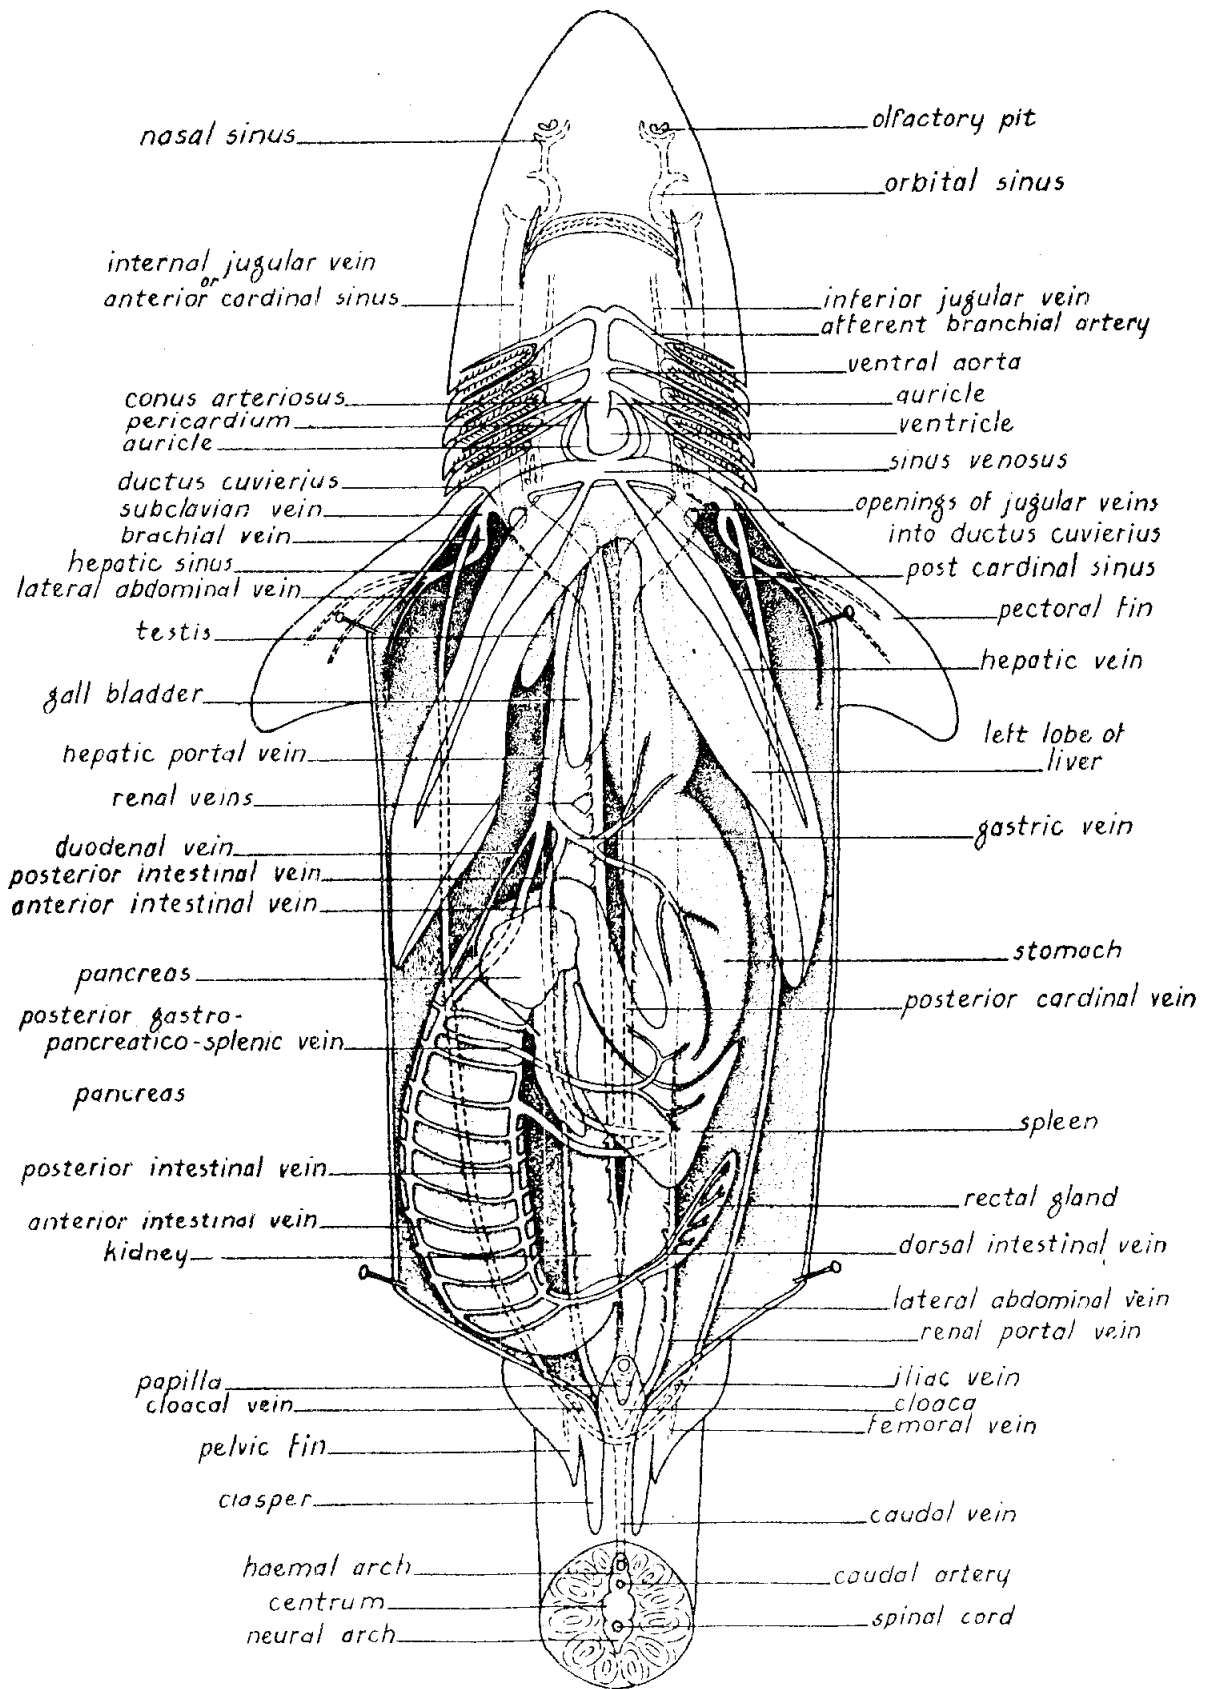 nasal sinus
internal jugular vein
or
anterior cardinal sinus
conus arteriosus
pericardium
auricle
ductus cuvierius
subclavian vein
brachial vein
hepatic sinus
lateral abdominal vein
testis
gall bladder
hepatic portal vein
renal veins
duodenal vein
posterior intestinal vein
anterior intestinal vein
pancreas
posterior gastro-
pancreatico-splenic vein
pancreas
posterior intestinal vein
anterior intestinal vein
kidney
papilla
cloacal vein
pelvic fin
clasper
haemal arch
centrum
neural arch
olfactory pit
orbital sinus
inferior jugular vein
afferent branchial artery
ventral aorta
auricle
ventricle
sinus venosus
openings of jugular veins
into ductus cuvierius
post cardinal sinus
pectoral fin
hepatic vein
left lobe of
liver
gastric vein
stomach
posterior cardinal vein
spleen
rectal gland
dorsal intestinal vein
lateral abdominal vein
renal portal vein
iliac vein
cloaca
femoral vein
caudal vein
caudal artery
spinal cord